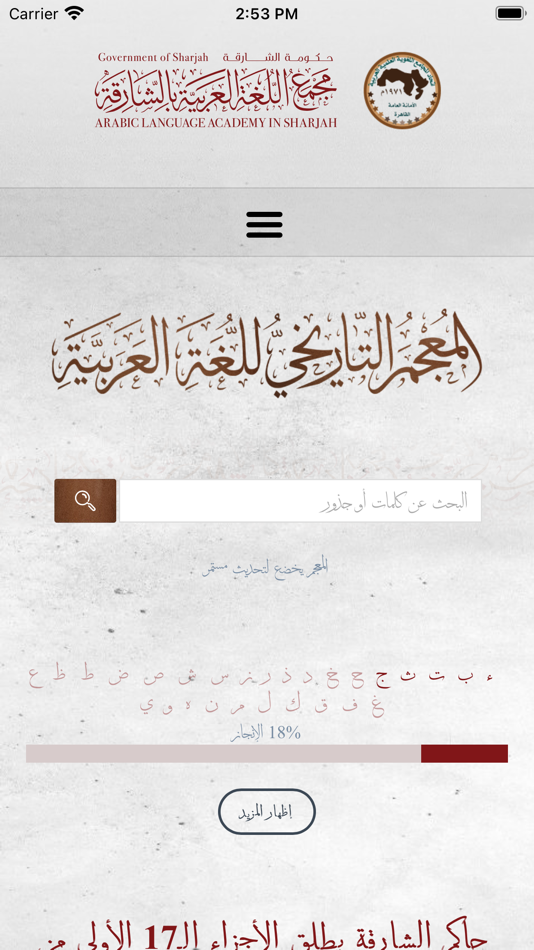 Carrier 2:53 PM
Government of Sharjah حكومة الشارقة
مجمع اللغة العربية بالشارقة
ARABIC LANGUAGE ACADEMY IN SHARJAH
اتحاد المجامع اللغوية العلمية العربية
١٩٧١م
الأمانة العامة
القاهرة
المُعْجَمُ التَّارِيخِيُّ لِلُّغَةِ العَرَبِيَّةِ
البحث عن كلمات أو جذور
المعجم يخضع لتحديث مستمر .
ء ب ت ث ج ح خ د ذ ر ز س ش ص ض ط ظ ع
غ ف ق ك ل م ن ه و ي
18% الإنجاز
إظهار المزيد
حاكم الشارقة يطلق الأجزاء الـ17 الأولى من